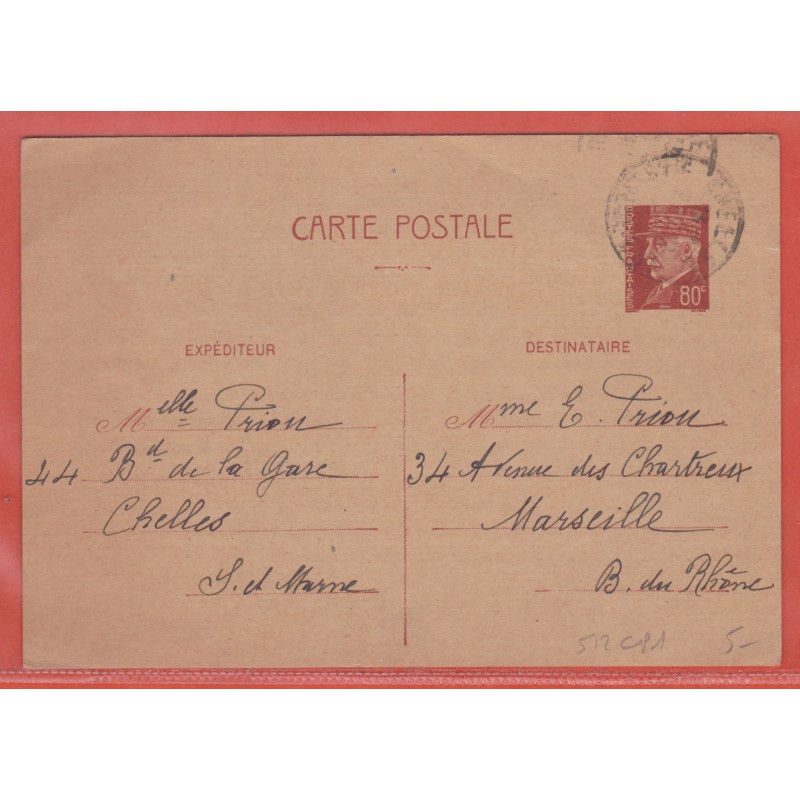 CARTE POSTALE
POSTES FRANÇAISES
80c
EXPÉDITEUR
Melle Prion
44 Bd de la Gare
Chelles
S. et Marne
DESTINATAIRE
Mme E. Prion
34 Avenue des Chartreux
Marseille
B. du Rhône
512 CP1 5-